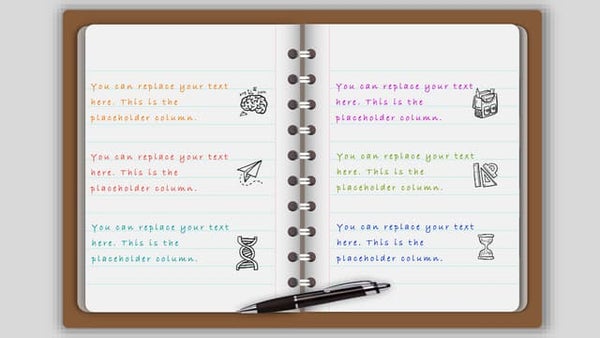 You can replace your text
here. This is the
placeholder column.
You can replace your text
here. This is the
placeholder column.
You can replace your text
here. This is the
placeholder column.
You can replace your text
here. This is the
placeholder column.
You can replace your text
here. This is the
placeholder column.
You can replace your text
here. This is the
placeholder column.